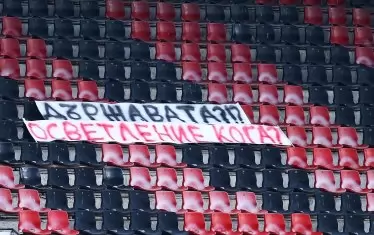 ДЪРЖАВАТА?!
ОСВЕТЛЕНИЕ КОГА?